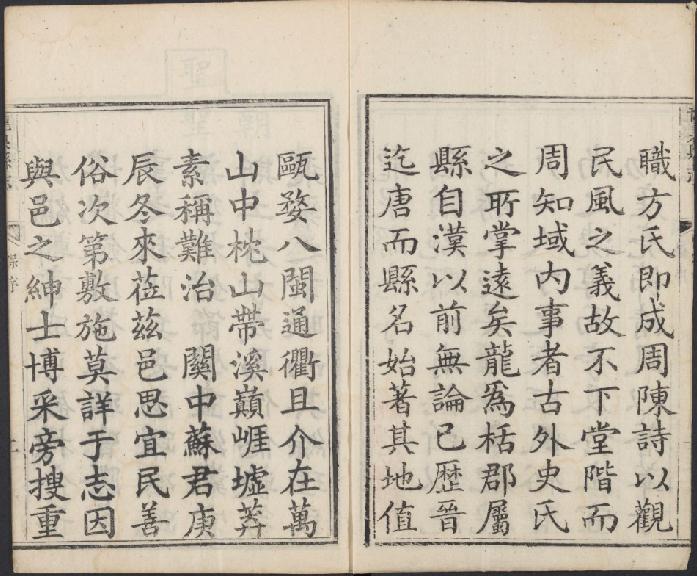 職方氏即成周陳詩以觀
民風之義故不下堂階而
周知域内事者古外史氏
之所掌遠矣龍為栝郡屬
縣自漢以前無論已歷晉
迄唐而縣名始著其地值
甌婺八閩通衢且介在萬
山中枕山帶溪巔崕墟莽
素稱難治 關中蘇君庚
辰冬來莅茲邑思宜民善
俗次第敷施莫詳于志因
與邑之紳士博采旁搜重